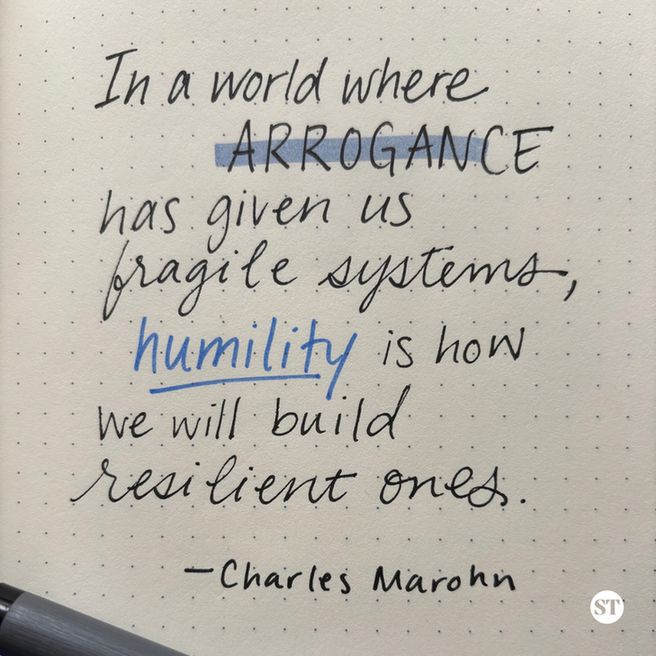 In a world where
ARROGANCE
has given us
fragile systems,
humility is how
we will build
resilient ones.
—Charles Marohn
ST